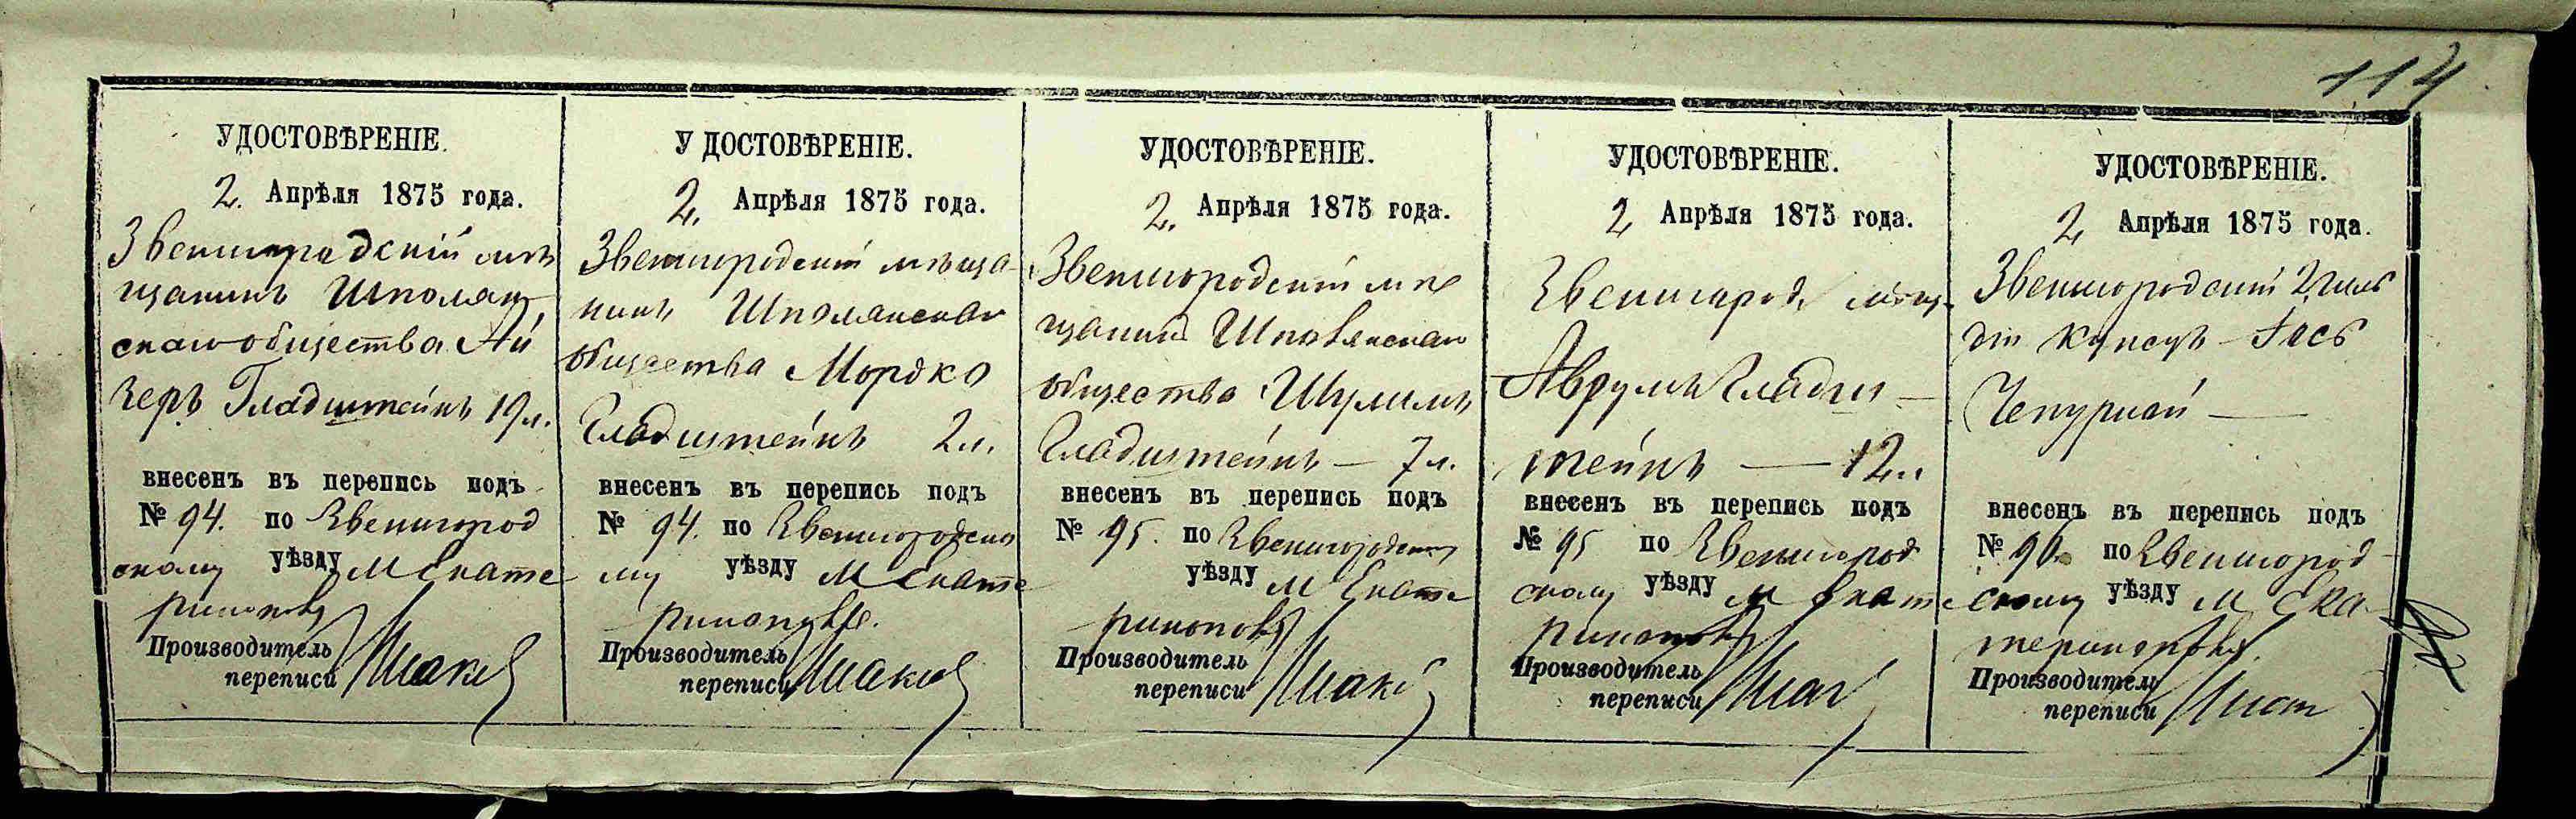 114
УДОСТОВѢРЕНІЕ.
2. Апрѣля 1875 года.
Звенигородскій мѣ
щанинъ Шполян
скаго общества Ай
зеръ Гладштейнъ 19 л.
внесенъ въ перепись подъ
№ 94. по Звенигород
скому уѣзду М Екате
ринополь
Производитель
переписи
У ДОСТОВѢРЕНІЕ.
2. Апрѣля 1875 года.
Звенигородскій мѣща
нинъ Шполянскаго
общества Мордко
Гладштейнъ 2 л.
внесенъ въ перепись подъ
№ 94. по Звенигородско
му уѣзду М Екате
ринополь.
Производитель
переписи
УДОСТОВѢРЕНІЕ.
2. Апрѣля 1875 года.
Звенигородскій мѣ
щанинъ Шполянскаго
общества Шулимъ
Гладштейнъ — 7 л.
внесенъ въ перепись подъ
№ 95. по Звенигородскому
уѣзду М Екате
ринополь
Производитель
переписи
УДОСТОВѢРЕНІЕ.
2 Апрѣля 1875 года.
Звенигород. мѣщ.
Аврумъ Гладш —
тейнъ — 12 л.
внесенъ въ перепись подъ
№ 95 по Звенигород
скому уѣзду М Екате
ринополь
Производитель
переписи
УДОСТОВѢРЕНІЕ.
2 Апрѣля 1875 года.
Звенигородскій 2 гиль
діи купецъ Іось
Чепурной —
внесенъ въ перепись подъ
№ 96. по Звенигород
скому уѣзду М Ека
теринополь.
Производитель
переписи